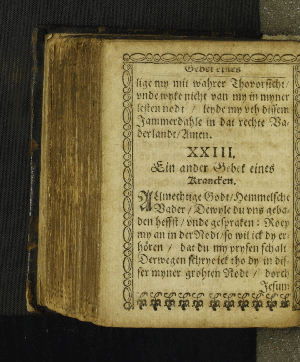 Gebet eines
lige my mit wahrer Thovorsicht/
vnde wyke nicht van my in myner
lesten nodt / leyde my vth dissem
Jammerdahle in dat rechte Va-
derlandt/Amen.
XXIII.
Ein ander Gebet eines
Krancken.
ALlmechtige Godt/Hemmelsche
Vader / Dewyle du vns geba-
den heffst / vnde gespraken: Roep
my an in der Nodt/so wil ick dy er-
hören / dat du my prysen schalt
Derwegen schrye ick tho dy in dis-
ser myner grohten Nodt / dorch
Jesum